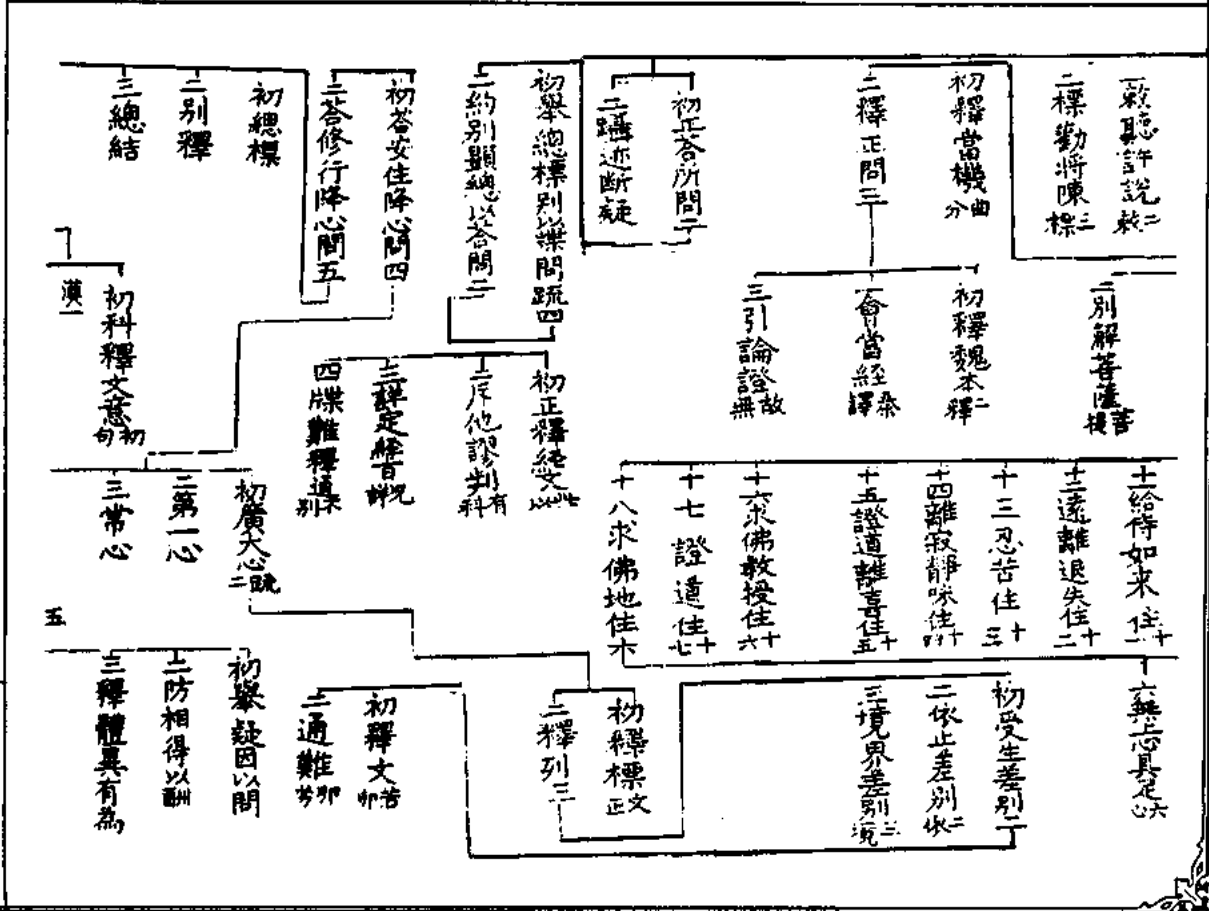 一敕聽許說 二敕
二標勸將陳 三標
初釋當機 曲分
二釋正問三
初正荅所問二
二躡迹斷疑
初舉總標別以牒問 疏四
二約別顯總以荅問二
初荅安住降心問四
二荅修行降心問五
初總標
二別釋
三總結
二別解菩薩 菩提
初釋魏本 二釋
二會當經 秦譯
三引論證 故無
初正釋經文 此以
二斥他謬判 有科
三詳定經旨 況詳
四牒難釋通 未別
初科釋文意 初句
漢一
十一給侍如來住 十一
十二遠離退失住 十二
十三忍苦住 十三
十四離寂靜味住 十四
十五證道離喜住 十五
十六求佛教授住 十六
十七證道住 十七
十八求佛地住六
初廣大心 疏二
二第一心
三常心
六無上心具足 六心
初受生差別二
二依止差別 二依
三境界差別 三境
初釋標 文正
二釋列三
初釋文 若卵
二通難 卵劣
初舉疑因以問
二防相得以酬
三釋體異有為
五